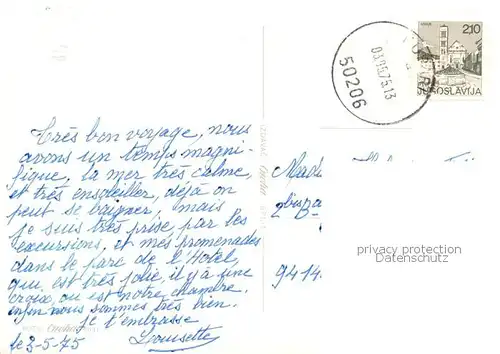 2,10
JUGOSLAVIJA
50206
Très bon voyage, nous
avons un temps magni-
fique, la mer très calme,
et très ensoleiller, déjà on
peut se baigner, mais
je suis très prise par les
excursions, et mes promenades
dans le parc de l'Hotel,
qui est très jolie, il y a une
croix, ou est notre chambre.
enfin nous sommes très bien.
Je t'embrasse
Louisette
le 3-5-75
privacy protection
Datenschutz